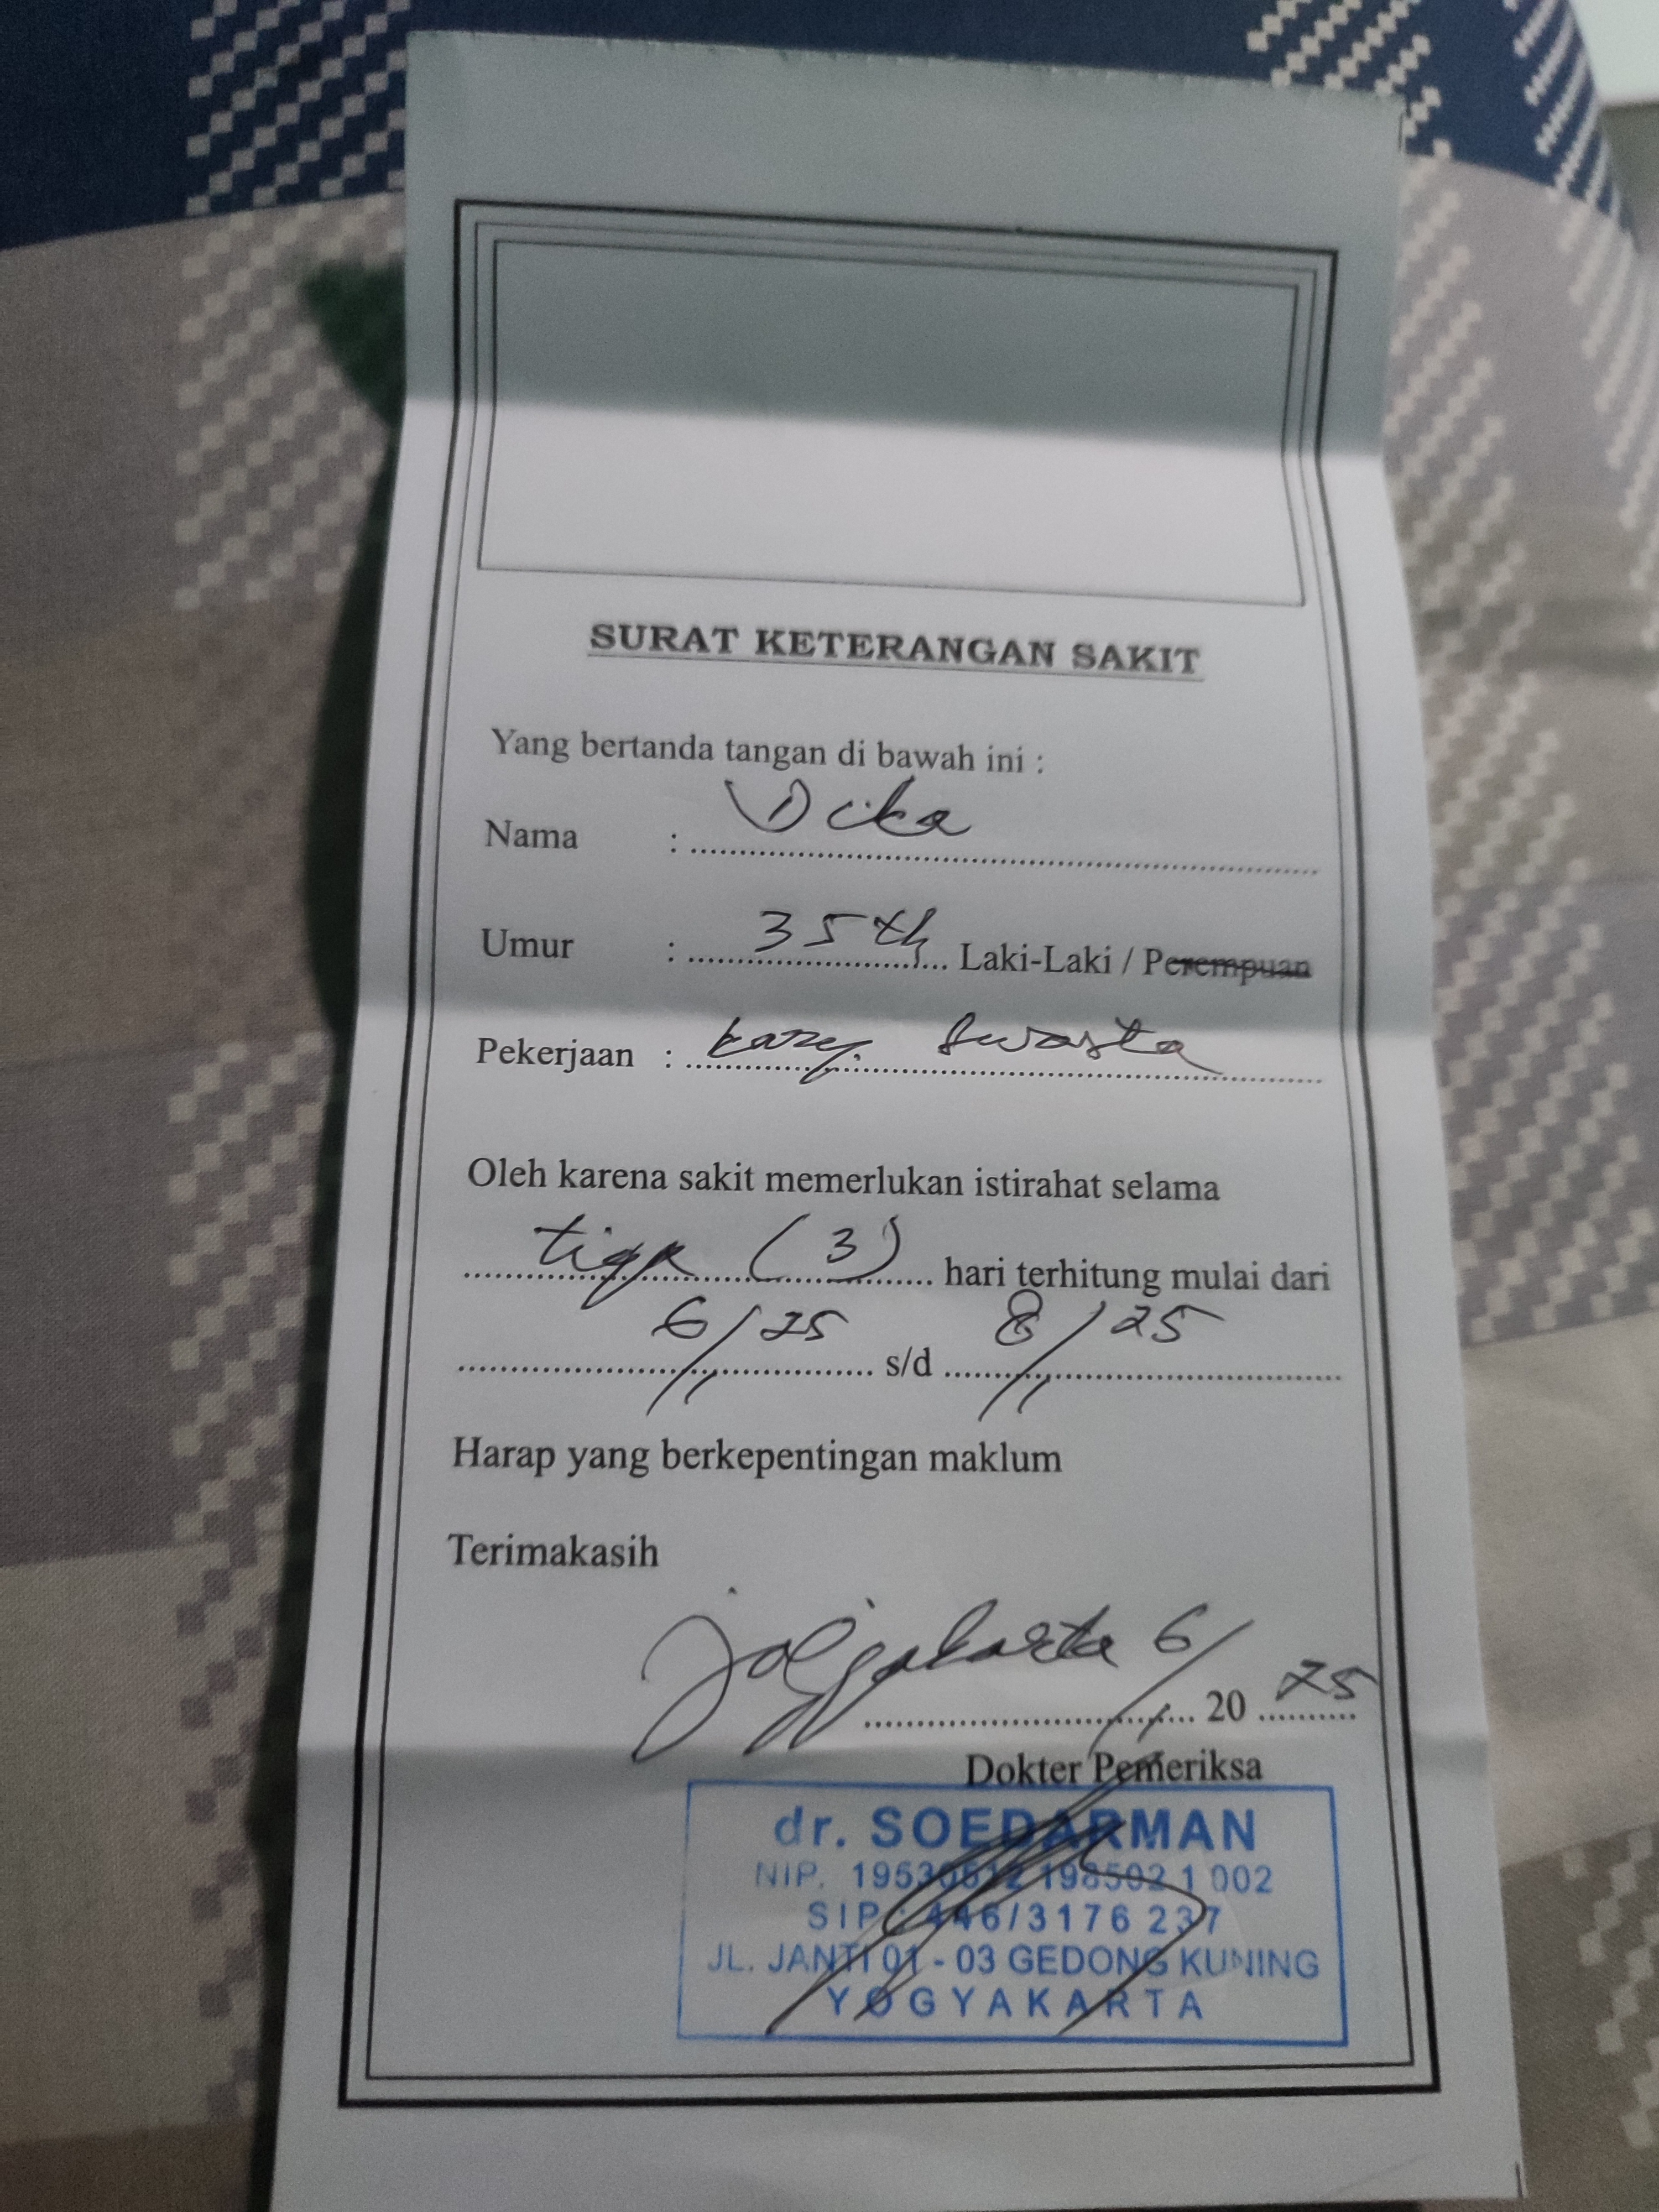 SURAT KETERANGAN SAKIT
Yang bertanda tangan di bawah ini :
Nama : Dika
Umur : 35 th Laki-Laki / Perempuan
Pekerjaan : kary. Swasta
Oleh karena sakit memerlukan istirahat selama
tiga (3) hari terhitung mulai dari
6/11 25 s/d 8/11 25
Harap yang berkepentingan maklum
Terimakasih
Jogjakarta 6/11 20 25
Dokter Pemeriksa
dr. SOEDARMAN
NIP. 19530512 198502 1 002
SIP : 446/3176 237
JL. JANTI 01 - 03 GEDONG KUNING
YOGYAKARTA